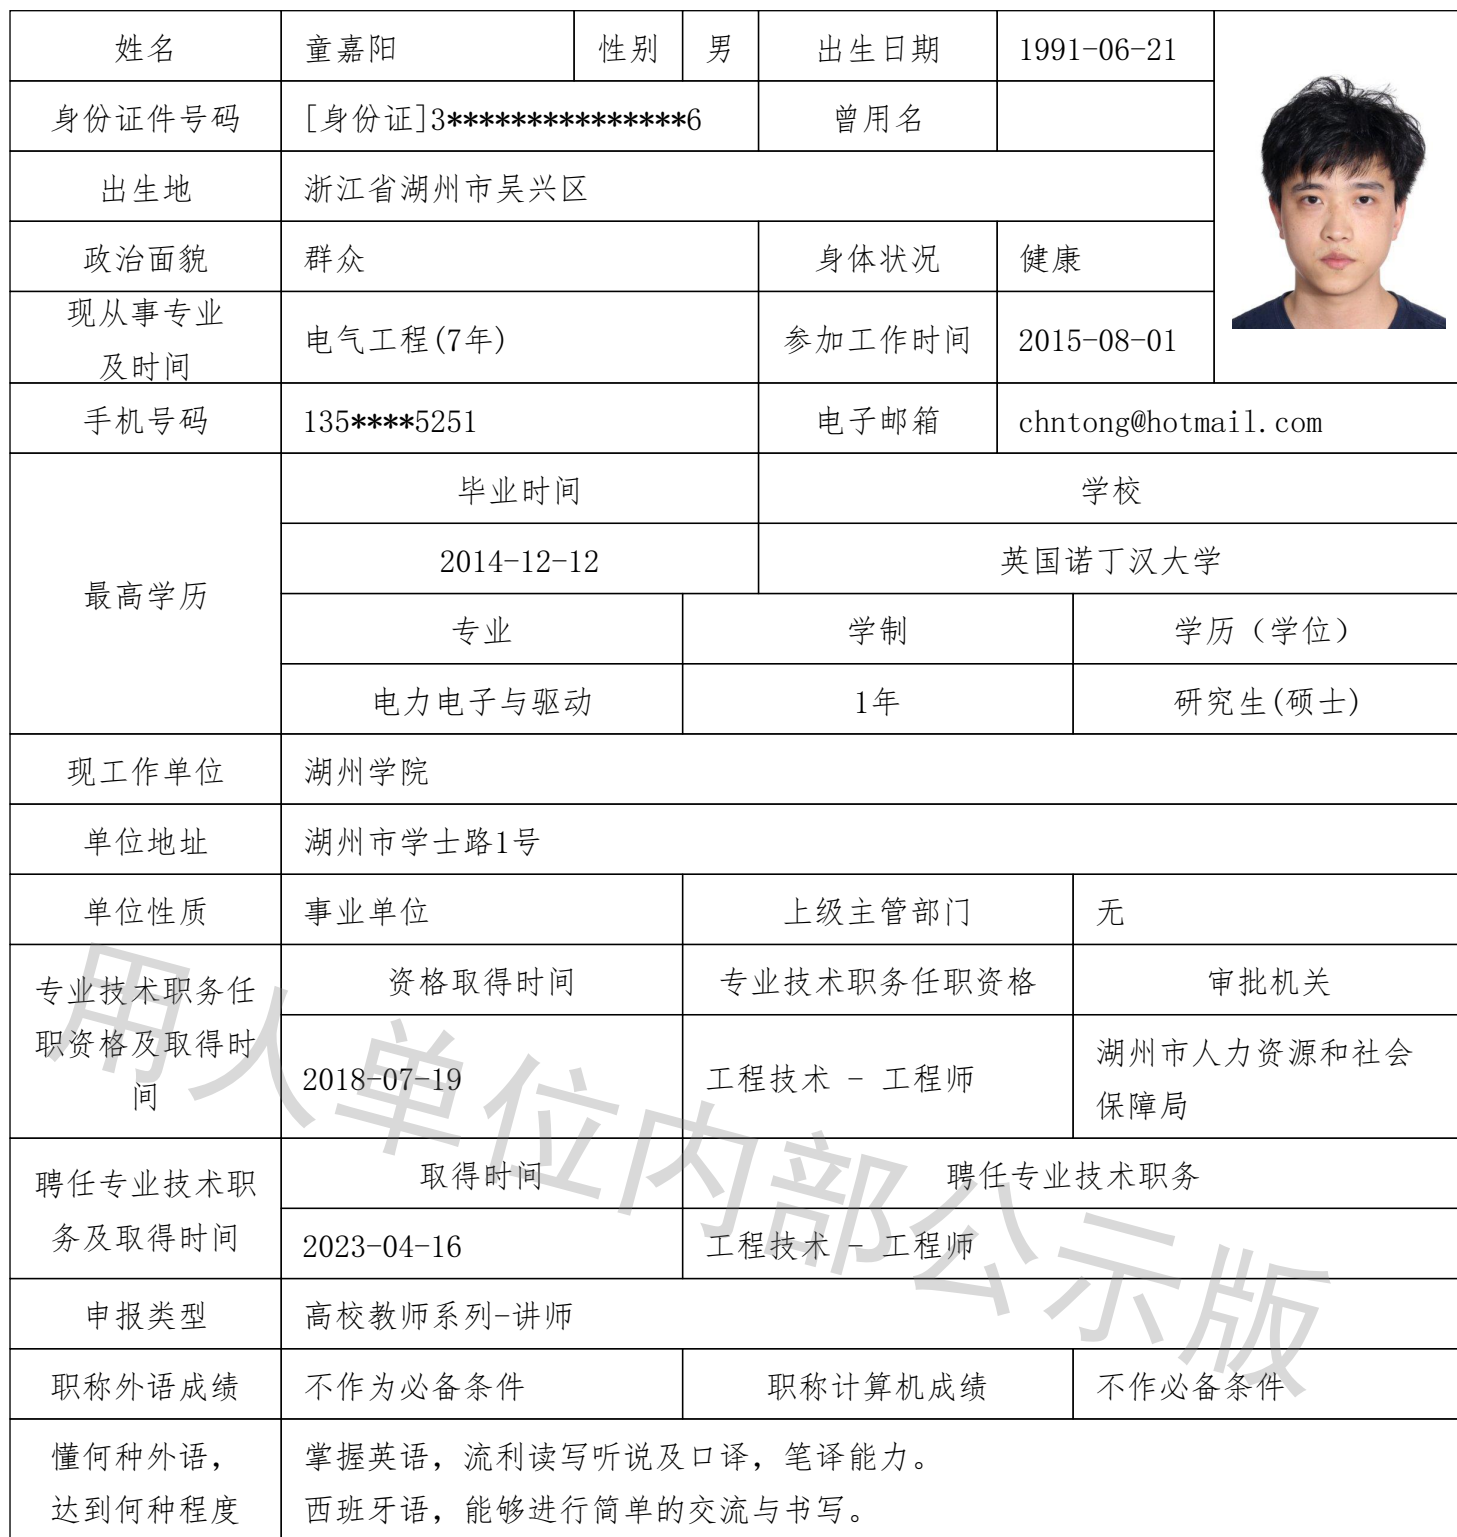 姓名 童嘉阳 性别 男 出生日期 1991-06-21
身份证件号码 [身份证]3***************6 曾用名
出生地 浙江省湖州市吴兴区
政治面貌 群众 身体状况 健康
现从事专业
及时间
电气工程(7年) 参加工作时间 2015-08-01
手机号码 135****5251 电子邮箱 chntong@hotmail.com
最高学历
毕业时间 学校
2014-12-12 英国诺丁汉大学
专业 学制 学历（学位）
电力电子与驱动 1年 研究生(硕士)
现工作单位 湖州学院
单位地址 湖州市学士路1号
单位性质 事业单位 上级主管部门 无
专业技术职务任
职资格及取得时
间
资格取得时间 专业技术职务任职资格 审批机关
2018-07-19 工程技术 - 工程师 湖州市人力资源和社会
保障局
聘任专业技术职
务及取得时间
取得时间 聘任专业技术职务
2023-04-16 工程技术 - 工程师
申报类型 高校教师系列-讲师
职称外语成绩 不作为必备条件 职称计算机成绩 不作必备条件
懂何种外语，
达到何种程度
掌握英语，流利读写听说及口译，笔译能力。
西班牙语，能够进行简单的交流与书写。
用人单位内部公示版